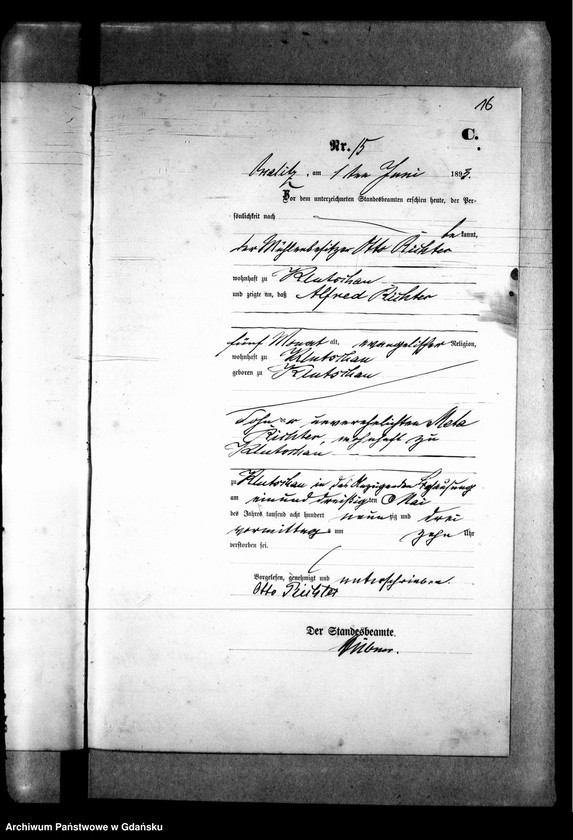 16
C.
Nr. 15
am 1ten Juni 1893.
Vor dem unterzeichneten Standesbeamten erschien heute, der Per-
sönlichkeit nach
bekannt,
der Mühlenbesitzer Otto Richter
wohnhaft zu Klutschau
und zeigte an, daß Alfred Richter
fünf Monat alt, evangelischer Religion,
wohnhaft zu Klutschau
geboren zu Klutschau
Sohn der unverehelichten Meta
Richter, wohnhaft zu
Klutschau
zu Klutschau in des Anzeigenden Behausung
am einund dreißigten Mai
des Jahres tausend acht hundert neunzig und drei
vormittags um zehn Uhr
verstorben sei.
Vorgelesen, genehmigt und unterschrieben.
Otto Richter
Der Standesbeamte.
Archiwum Państwowe w Gdańsku